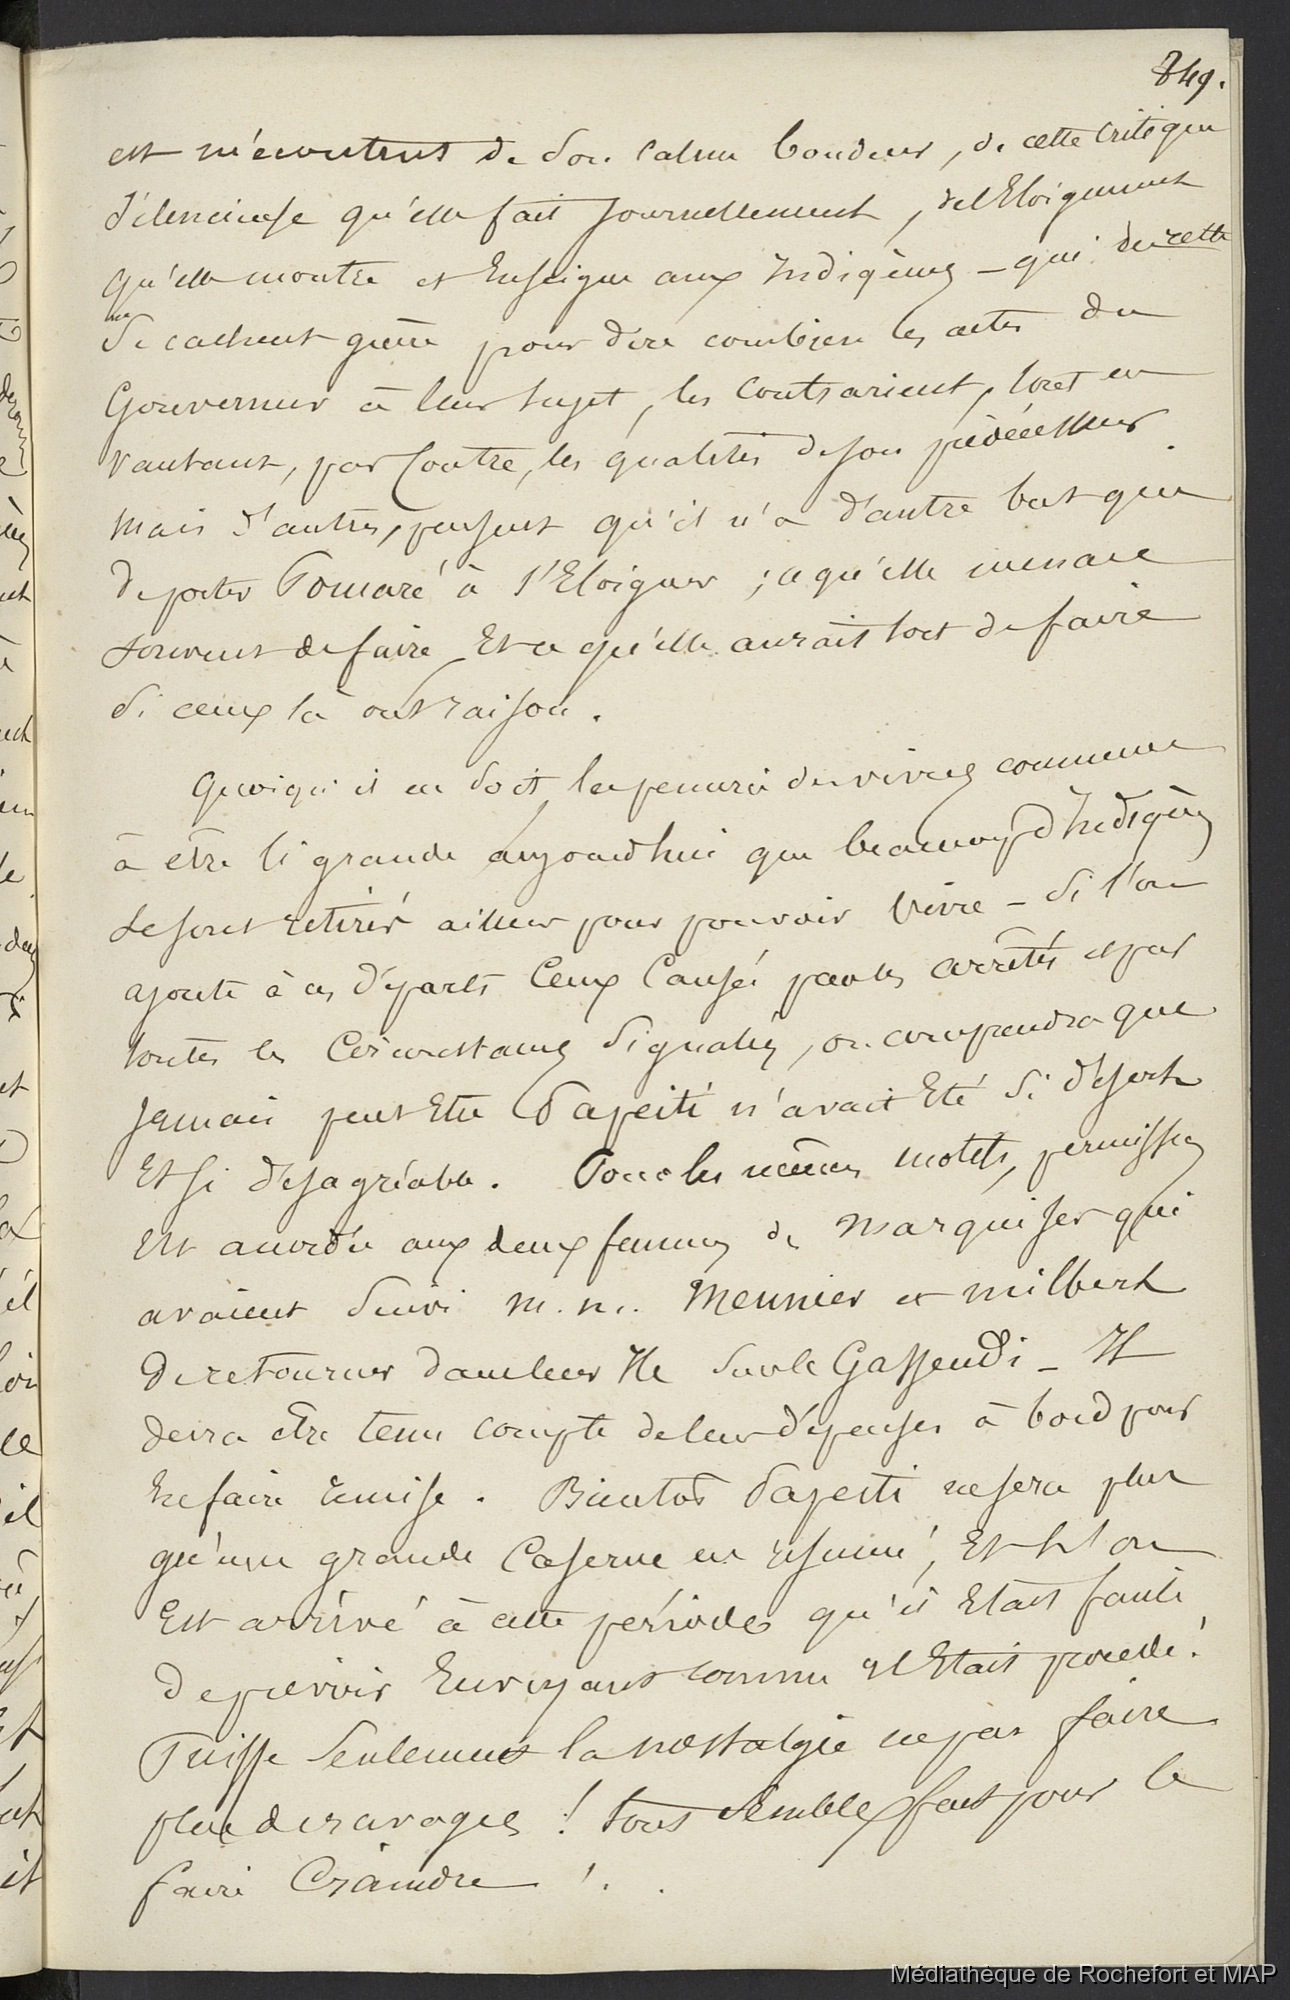 849.
est mécontent de son calme boudeur, de cette critique
silencieuse qu'elle fait journellement, de l'Eloignement
qu'elle montre et Enseigne aux Indigènes – qui du reste
ne
se cachent guère pour dire combien les actes du
Gouverneur à leur sujet, les contrarient, tout en
vantant, par Contre, les qualités de son prédécesseur.
Mais d'autres, pensent qu'il n'a d'autre but que
de porter Pomaré à s'Eloigner ; ce qu'elle menace
souvent de faire Et ce qu'elle aurait tort de faire
si ceux là ont raison.
Quoiqu'il en soit, la penurie des vivres commence
à être si grande aujourd'hui que beaucoup d'Indigènes
se sont retirés ailleurs pour pouvoir vivre – Si l'on
ajoute à ces départs Ceux Causés par les arrêtés et par
toutes les Circonstances Signalées, on comprendra que
Jamais peut Etre Papeiti n'avait Eté Si désert
Et si désagréable. Pour les mêmes motifs, permission
Est accordée aux deux femmes de Marquises qui
avaient Suivi M.M. Meunier et Milbert
De retourner dans leur Ile sur le Gassendi – Il
devra être tenu compte de leur dépenses à bord pour
En faire remise. Bientôt Papeiti ne sera plus
qu'une grande Caserne en résumé, Et l'on
Est arrivé à cette période qu'il Etait facile
De prévoir En voyant comme il Etait procédé !
Puisse Seulement la nostalgie ne pas faire
plus de ravages ! tout semble fait pour le
faire Craindre !.
Médiathèque de Rochefort et MAP